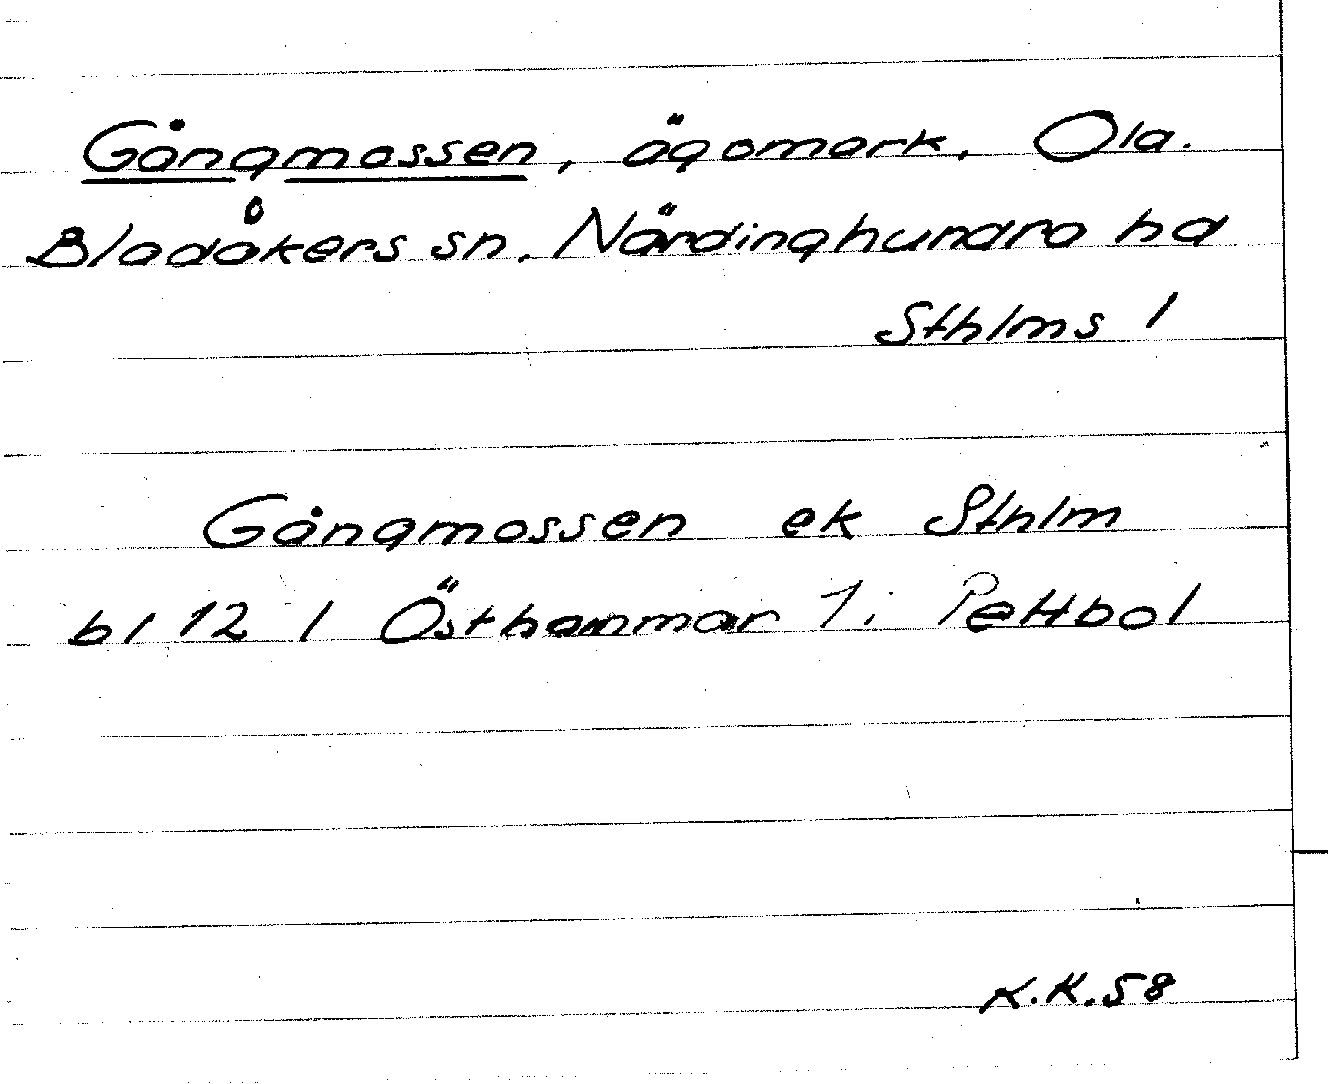 Gångmossen, ägomark, Ola.
Bladåkers sn. Närdinghundra hd
Sthlms l
Gångmossen ek Sthlm
bl 12 / Östhammar 7. Pettbol
K.K.58